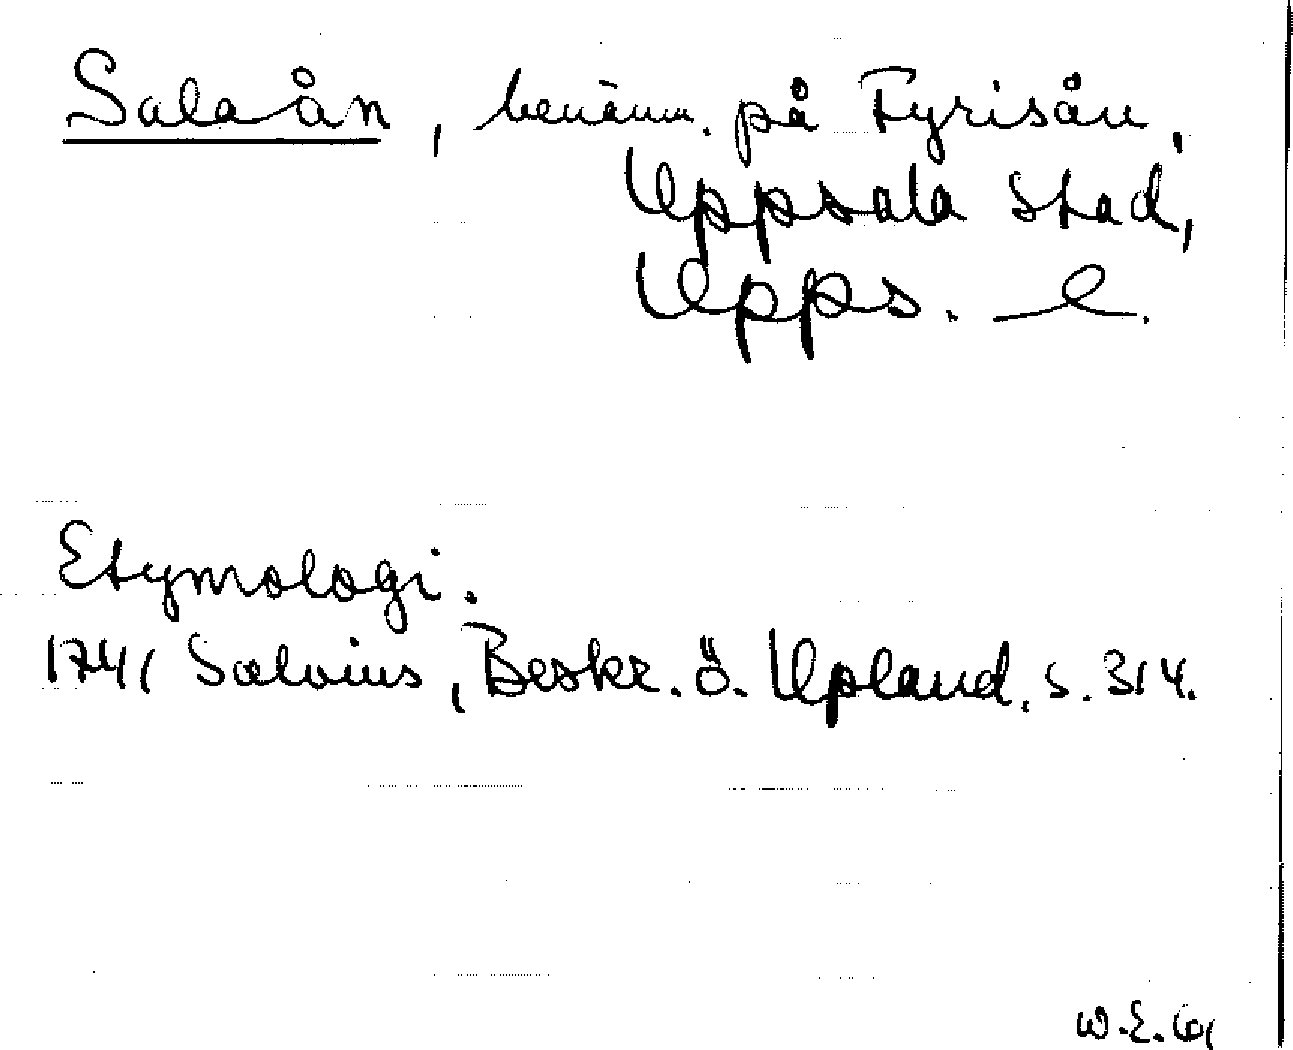 Sala ån, benämn. på Fyrisån,
Uppsala stad,
Upps. l.
Etymologi.
1741 Salvius, Beskr. ö. Upland, s. 314.
W.E. 61